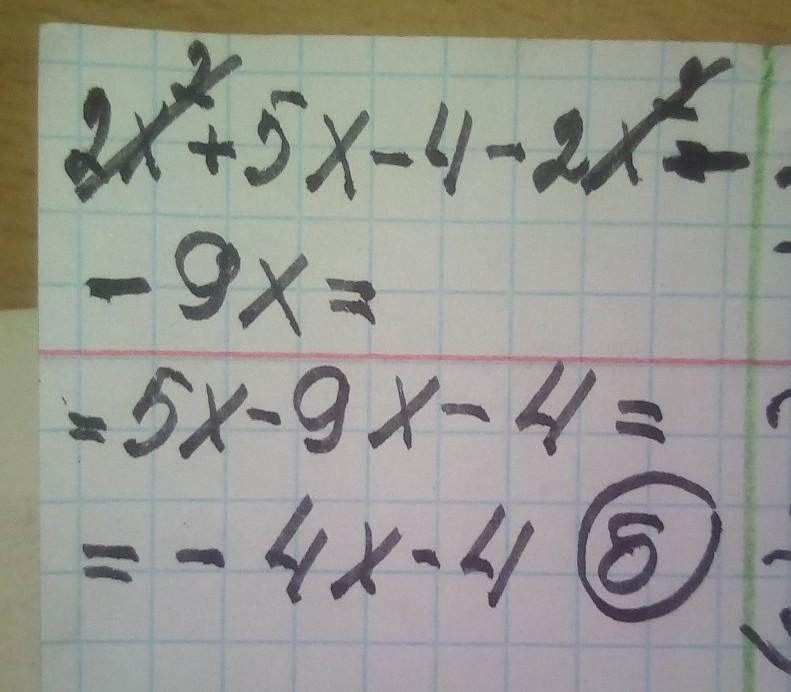 2x²+5x-4-2x²-
-9x=
=5x-9x-4=
=-4x-4 б